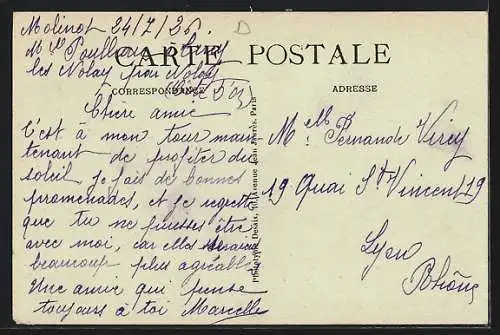 Molinot 24/7/26.
CARTE POSTALE
CORRESPONDANCE
ADRESSE
les Nolay par Nolay
Chère amie
C'est à mon tour main
tenant de profiter du
soleil je fais de bonnes
promenades, et je regrette
que tu ne puisses être
avec moi, car elles seraient
beaucoup plus agréables
Une amie qui pense
toujours à toi Marcelle
Phototypie Desaix, Avenue Jean Jaurès, Paris
Melle Fernande Virey
19 Quai St Vincent 19
Lyon
Rhône